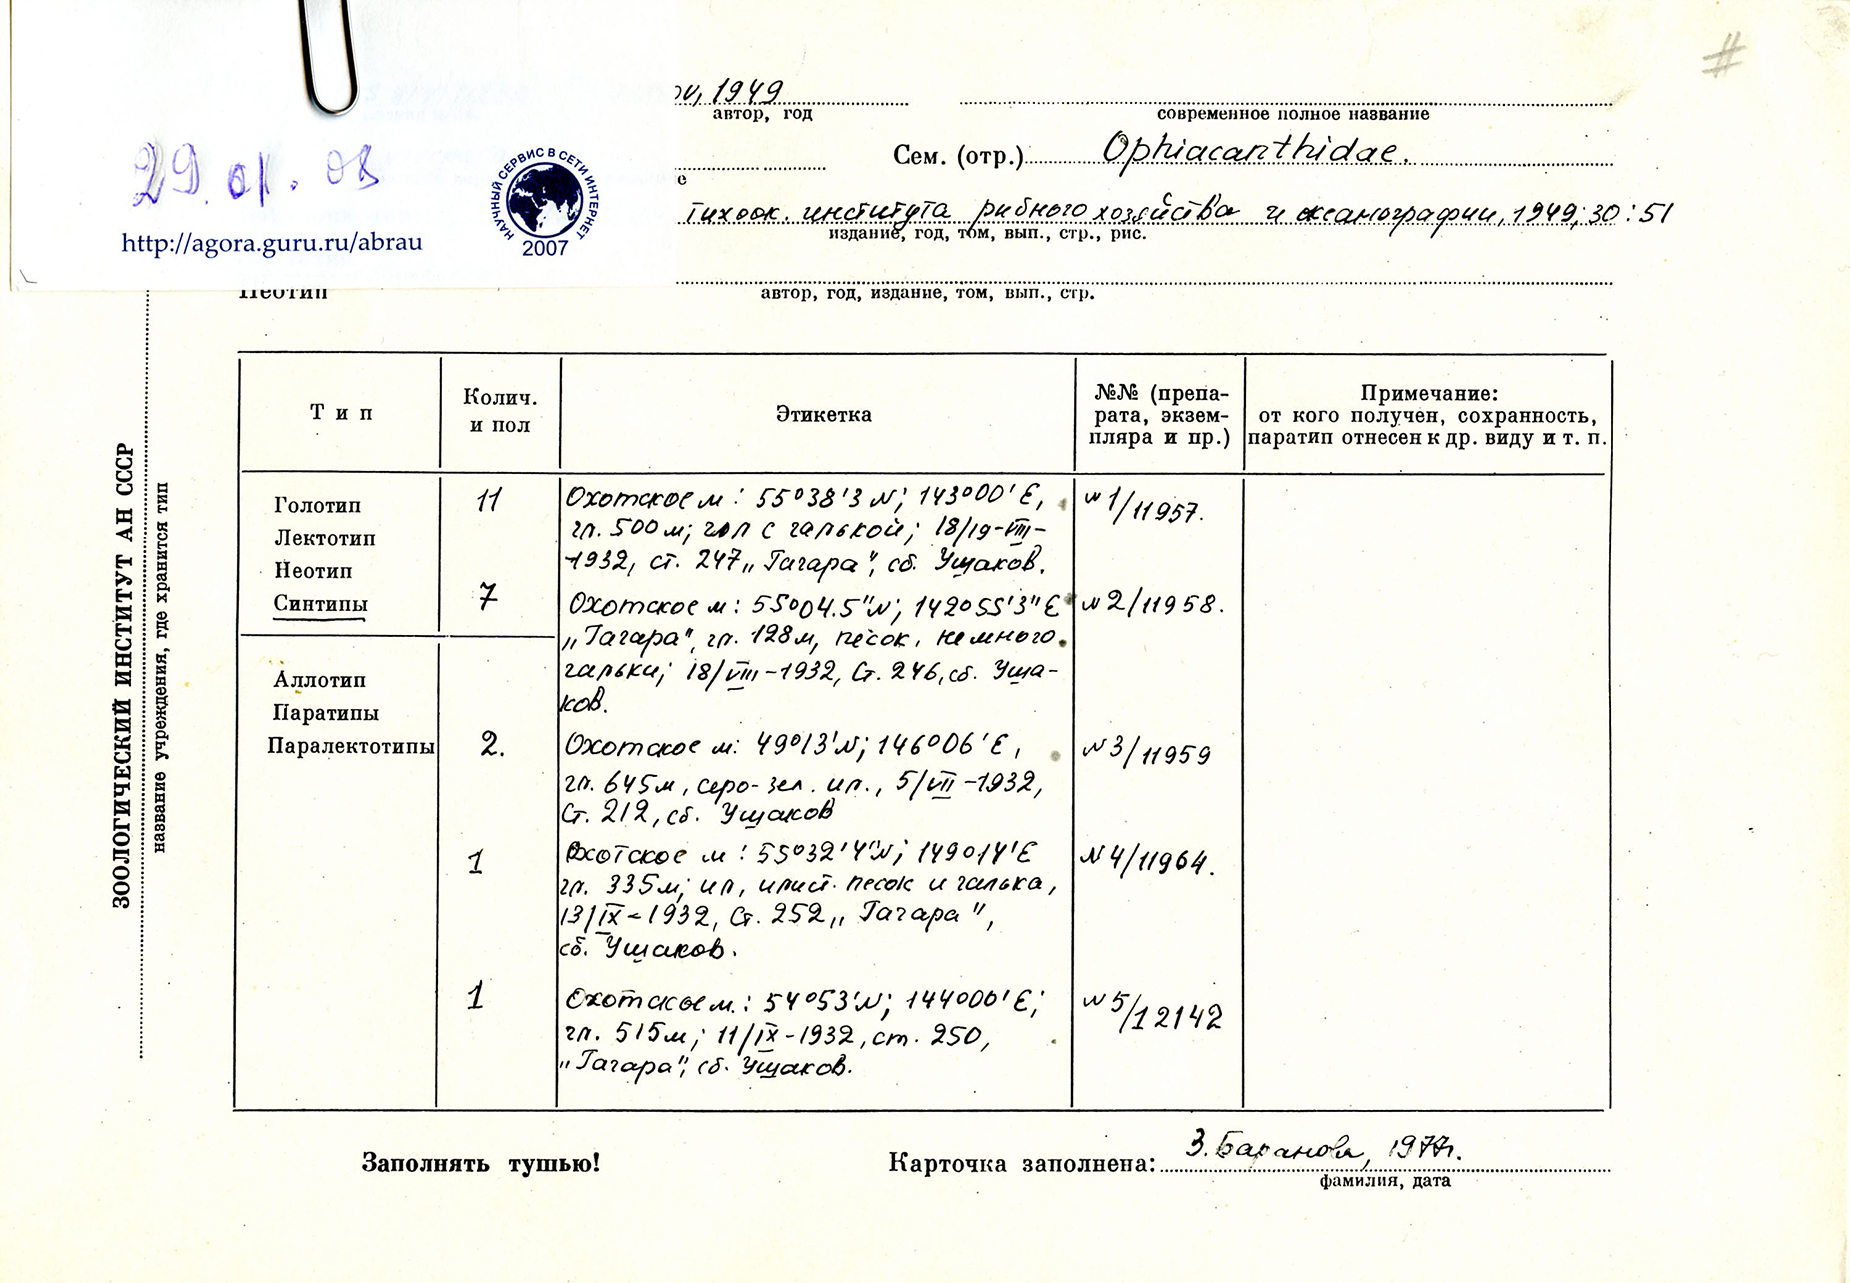 #
ои, 1949
автор, год
современное полное название
29.01.08
НАУЧНЫЙ СЕРВИС В СЕТИ ИНТЕРНЕТ
2007
http://agora.guru.ru/abrau
Сем. (отр.) Ophiacanthidae.
е
тихоок. института рибного хозяйства и океанографии, 1949; 30:51
издание, год, том, вып., стр., рис.
Неотип
автор, год, издание, том, вып., стр.
ЗООЛОГИЧЕСКИЙ ИНСТИТУТ АН СССР
название учреждения, где хранится тип
Тип
Колич. и пол
Этикетка
№№ (препа-
рата, экзем-
пляра и пр.)
Примечание:
от кого получен, сохранность,
паратип отнесен к др. виду и т. п.
Голотип
Лектотип
Неотип
Синтипы
Аллотип
Паратипы
Паралектотипы
11
Охотское м: 55°38'3 N; 143°00' E,
гл. 500 м; ил с галькой; 18/19-VIII-
-1932, ст. 247 „Гагара", сб. Ушаков.
N 1/11957.
7
Охотское м: 55°04.5"N; 142°55'3"E
„Гагара", гл. 128 м, песок, немного
гальки; 18/VIII-1932, Ст. 246, сб. Уша-
ков.
N 2/11958.
2.
Охотское м: 49°13'N; 146°06'E,
гл. 645 м, серо-зел. ил., 5/VII-1932,
Ст. 212, сб. Ушаков
N 3/11959
1
Охотское м: 55°32'4"N; 149°14'E
гл. 335 м; ил, илист. песок и галька,
13/IX-1932, Ст. 252 „Гагара",
сб. Ушаков.
N 4/11964.
1
Охотское м.: 54°53'N; 144°00'E;
гл. 515 м; 11/IX-1932, ст. 250,
„Гагара", сб. Ушаков.
N 5/12142
Заполнять тушью!
Карточка заполнена: З. Баранова, 1977г.
фамилия, дата